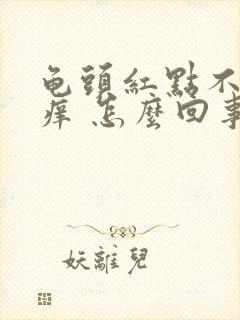 龟頭紅點不
痒 怎麼回事
妖離兒